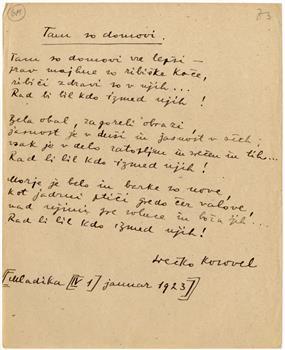 Tam so domovi.
Tam so domovi vse lepši —
prav majhne so ribiške koče,
ribiči zdravi so v njih...
Rad bi bil kdo izmed njih!
Bela obal, zagoreli obrazi,
jasnost je v duši in jasnost v očeh.
vsak je v delo zatopljen in srečen in tih...
Rad bi bil kdo izmed njih!
Morje je belo in barke so nove,
kot jadrni ptiči gredo čez valove,
nad njimi gre solnce in božji
Rad bi bil kdo izmed njih!
Srečko Kosovel
[Mladika [IV 1] januar 1923]
73